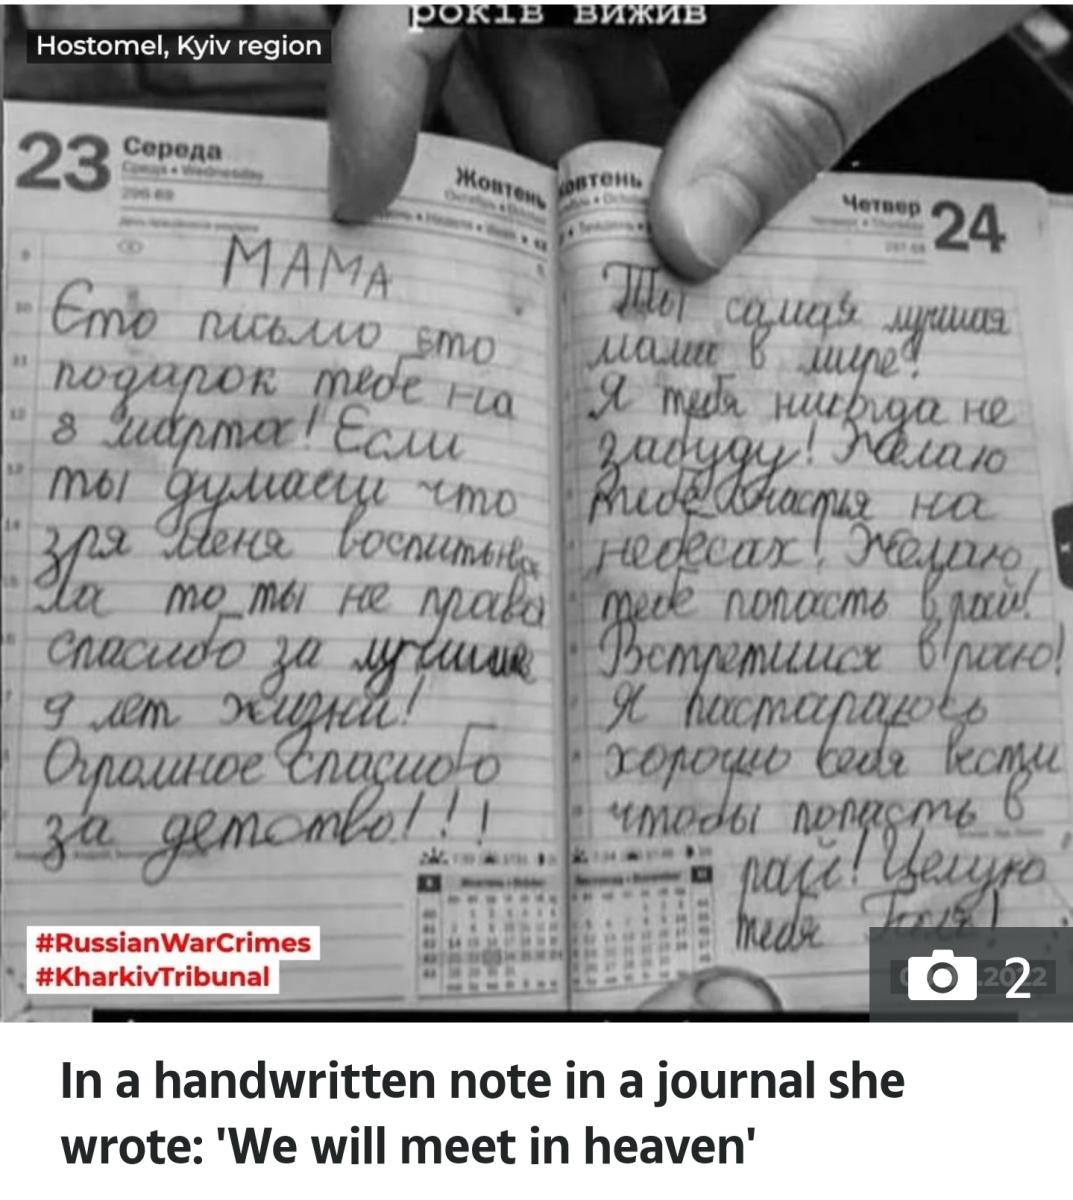 років вижив
Hostomel, Kyiv region
23 Середа
Жовтень
МАМА
Єто письмо єто
подарок тебе на
8 марта! Если
ты думаеш что
зря меня воспитыва
ла то ты не права
спасибо за лучшие
9 лет жизни!
Огромное спасибо
за детство!!!
Жовтень
Четвер 24
Ты самая лучшая
мама в мире!
Я тебя никогда не
забуду! Желаю
тебе счастья на
небесах! Желаю
тебе попасть в рай!
Встретимся в раю!
Я постараюсь
хорошо себя вести
чтобы попасть в
рай! Целую
тебя
#RussianWarCrimes
#KharkivTribunal
2
In a handwritten note in a journal she
wrote: 'We will meet in heaven'